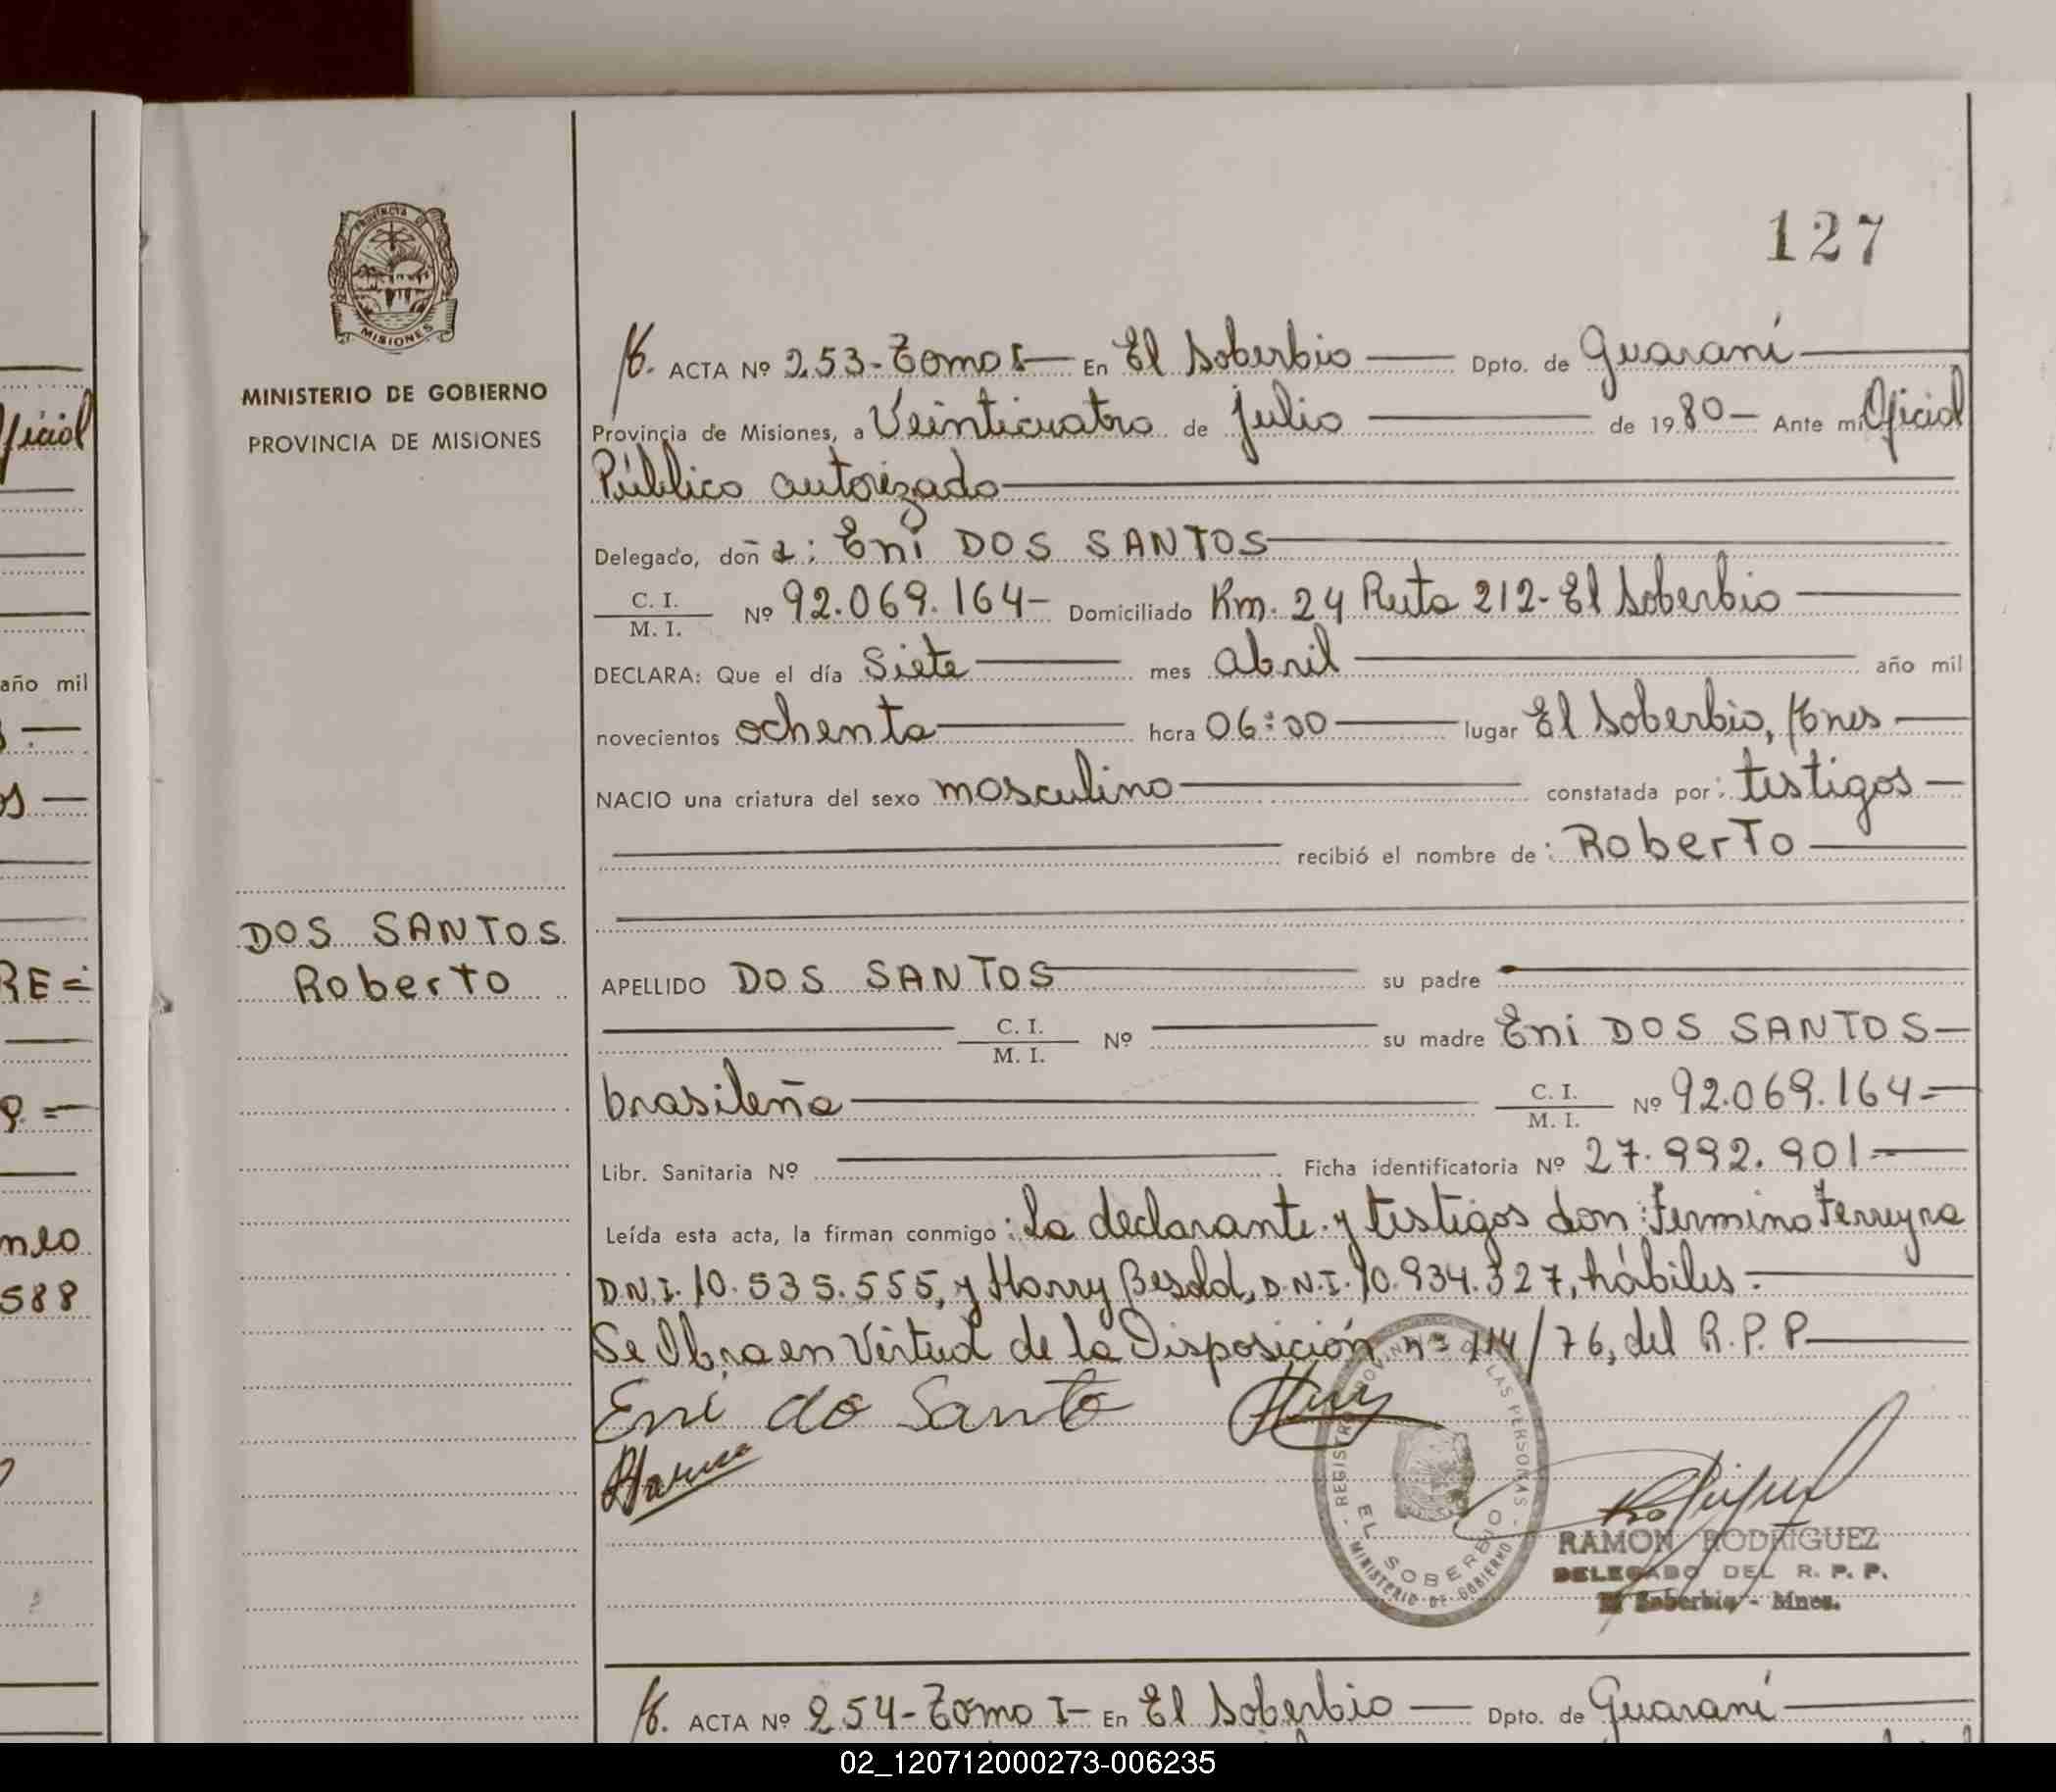 127
PROVINCIA DE
MISIONES
MINISTERIO DE GOBIERNO
PROVINCIA DE MISIONES
ACTA Nº 253-Tomo I En El Soberbio Dpto. de Guaraní
Provincia de Misiones, a Veinticuatro de julio de 1980- Ante mi Oficial
Público autorizado
Delegado, doña: Eni DOS SANTOS
C. I.
M. I.
Nº 92.069.164- Domiciliado Km. 24 Ruta 212- El Soberbio
DECLARA: Que el día Siete mes abril año mil
novecientos ochenta hora 06:00 lugar El Soberbio, Mnes
NACIO una criatura del sexo masculino constatada por: testigos
recibió el nombre de: Roberto
DOS SANTOS
Roberto
APELLIDO DOS SANTOS su padre
C. I.
M. I.
Nº su madre Eni DOS SANTOS
brasileña C. I.
M. I.
Nº 92.069.164
Libr. Sanitaria Nº Ficha identificatoria Nº 27.992.901
Leída esta acta, la firman conmigo: La declarante y testigos don: Fermino Ferreyra
D.N.I. 10.535.555, y Harry Besold, D.N.I. 10.934.327, hábiles.
Se Obra en Virtud de la Disposición nº 114/76, del R.P.P
Eni do Santo
REGISTRO PROVINCIAL DE LAS PERSONAS
EL SOBERBIO
MINISTERIO DE GOBIERNO
RAMON RODRIGUEZ
DELEGADO DEL R. P. P.
El Soberbio - Mnes.
ACTA Nº 254-Tomo I- En El Soberbio Dpto. de Guaraní
ficial
año mil
os
RE=
588
02_120712000273-006235